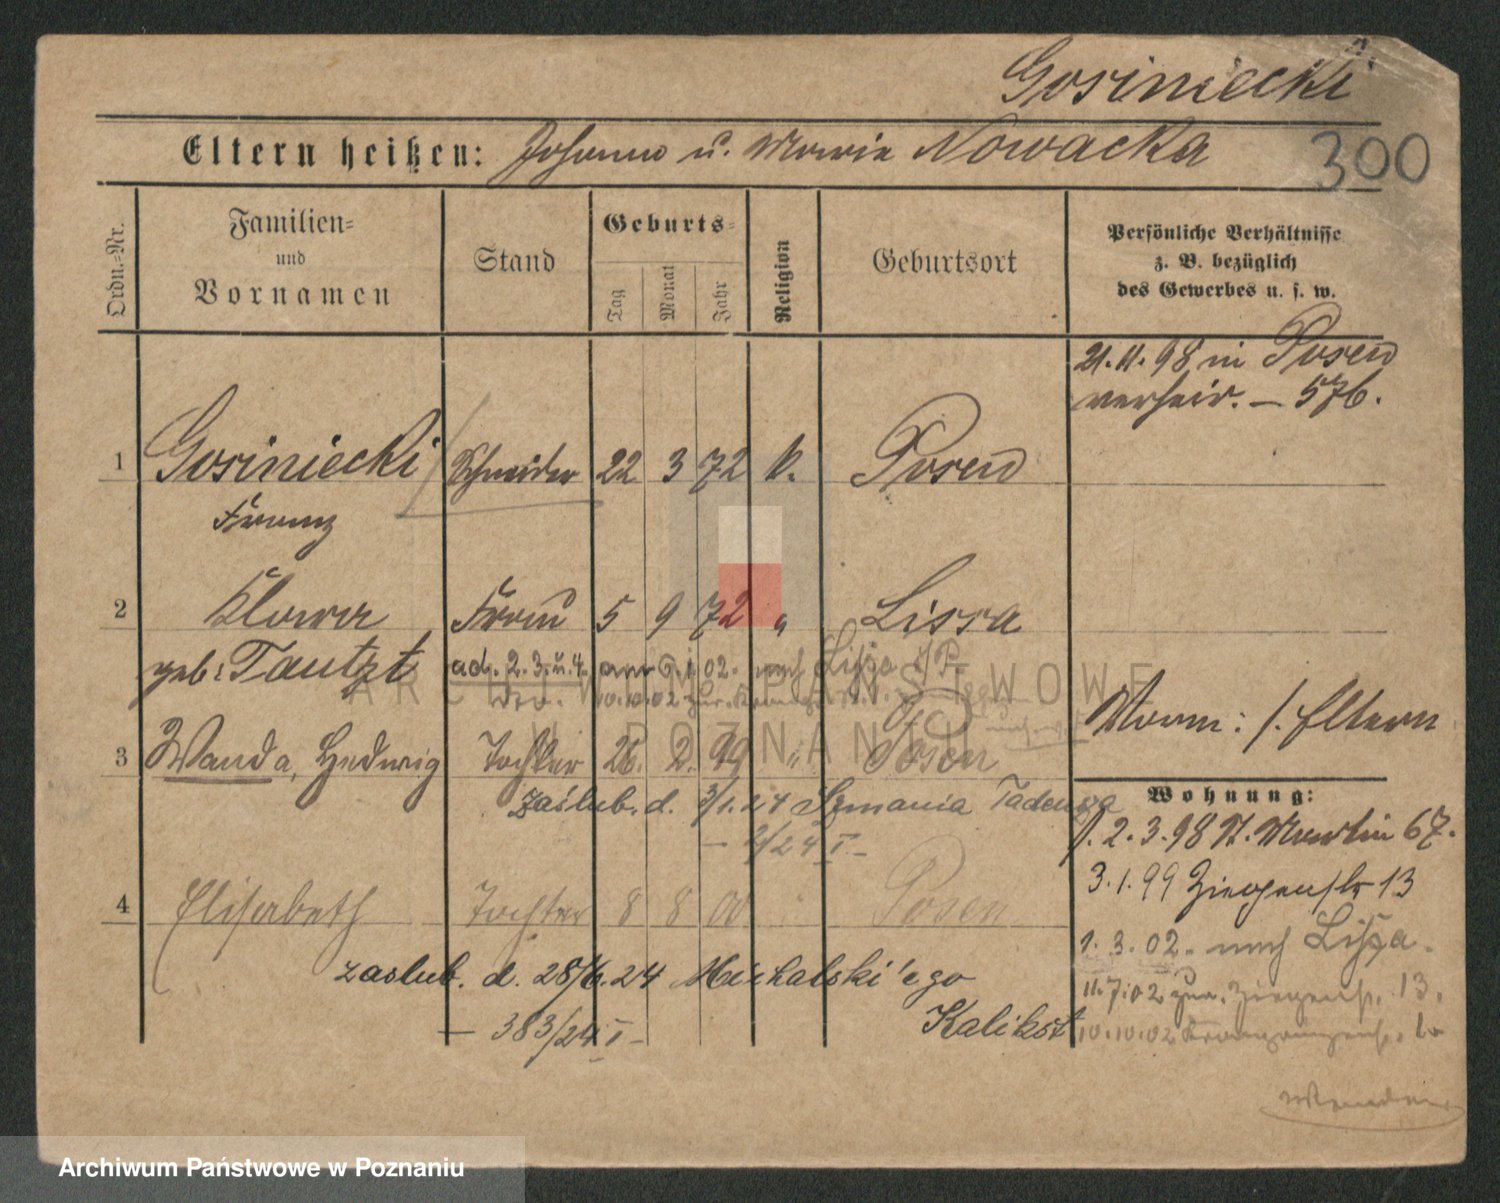 Gosiniecki
Eltern heißen: Johann u. Maria Nowacka
300
Ordn.-Nr.
Familien-
und
Vornamen
Stand
Geburts-
Tag
Monat
Jahr
Religion
Geburtsort
Persönliche Verhältnisse
z. B. bezüglich
des Gewerbes u. s. w.
21.11.98 in Posen
verheir. — 576.
1 Gosiniecki Schneider 22 3 72 k. Posen
Franz
2 Klara Frau 5 9 72 " Lissa
geb: Tautzt ad. 2. 3. u. 4. am 02. nach Lissa i/P.
10.10.02 zur.
Vorm: s. Eltern
3 Wanda, Hedwig Tochter 26. 2. 99 " Posen
zaślub. d. 3/1.24 Szmania Tadeusza
— 2/24 I —
Wohnung:
1. 2. 3. 98 St. Martin 67.
3.1.99 Ziegenstr 13
4 Elisabeth Tochter 8 8 00 Posen
1. 3. 02. nach Lissa.
zaslub. d. 28/6.24 Michalski'ego
11.7.02 zur. Ziegenstr. 13.
— 383/24 I — Kalikst
10.10.02
ARCHIWUM PAŃSTWOWE
W POZNANIU
Archiwum Państwowe w Poznaniu